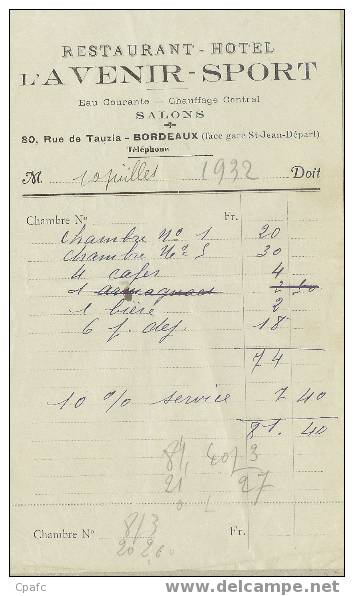 RESTAURANT - HOTEL
L'AVENIR - SPORT
Eau Courante — Chauffage Central
SALONS
80, Rue de Tauzia - BORDEAUX (face gare St-Jean-Départ)
Téléphone
M 10 juillet 1932 Doit
Chambre N° Fr.
chambre N° 1 20
chambre N° 5 30
4 cafés 4
1 armagnacs 2 50
1 bière 2
6 p. dej. 18
74
10 % service 7 40
81. 40
81, 40 / 3
21 27
Chambre N° 813 Fr.
20 260
Cpafc
www.delcampe.net